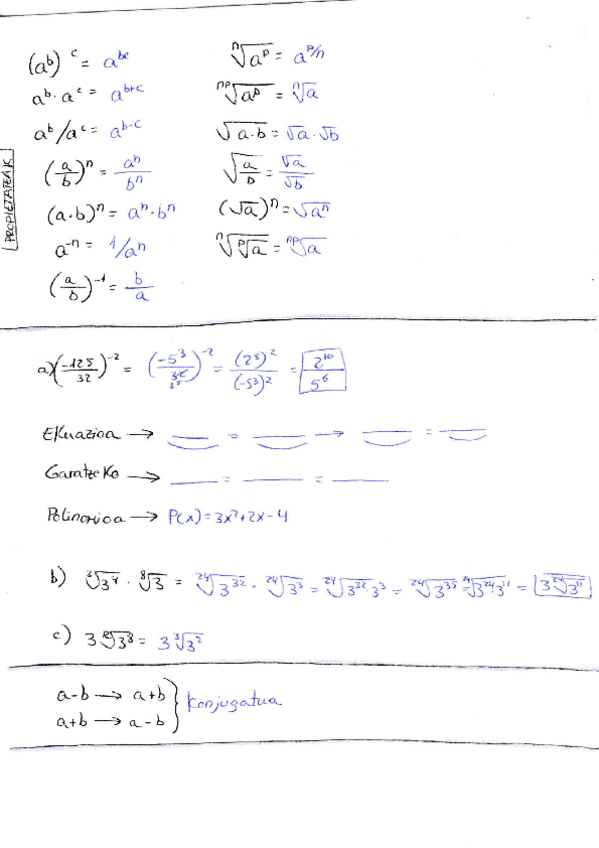 PROPIETATEAK
(a^b)^c = a^bc
a^b · a^c = a^b+c
a^b/a^c = a^b-c
(a/b)^n = a^n/b^n
(a·b)^n = a^n · b^n
a^-n = 1/a^n
(a/b)^-1 = b/a
ⁿ√a^p = a^p/n
ⁿᵖ√a^p = ⁿ√a
√a·b = √a · √b
√a/b = √a/√b
(√a)^n = √a^n
ⁿ√ᵖ√a = ⁿᵖ√a
a) (-125/32)^-2 = (-5^3/2^5)^-2 = (2^5)^2/(-5^3)^2 = 2^10/5^6
Ekuazioa → __ = __ → __ = __
Garatzeko → __ = __ = __
Polinomioa → P(x) = 3x²+2x-4
b) ³√3^4 · ⁸√3 = ²⁴√3^32 · ²⁴√3^3 = ²⁴√3^32·3^3 = ²⁴√3^35 = ²⁴√3^24·3^11 = 3 ²⁴√3^11
c) 3 ¹²√3^8 = 3 ³√3^2
a-b → a+b
a+b → a-b
Konjugatua